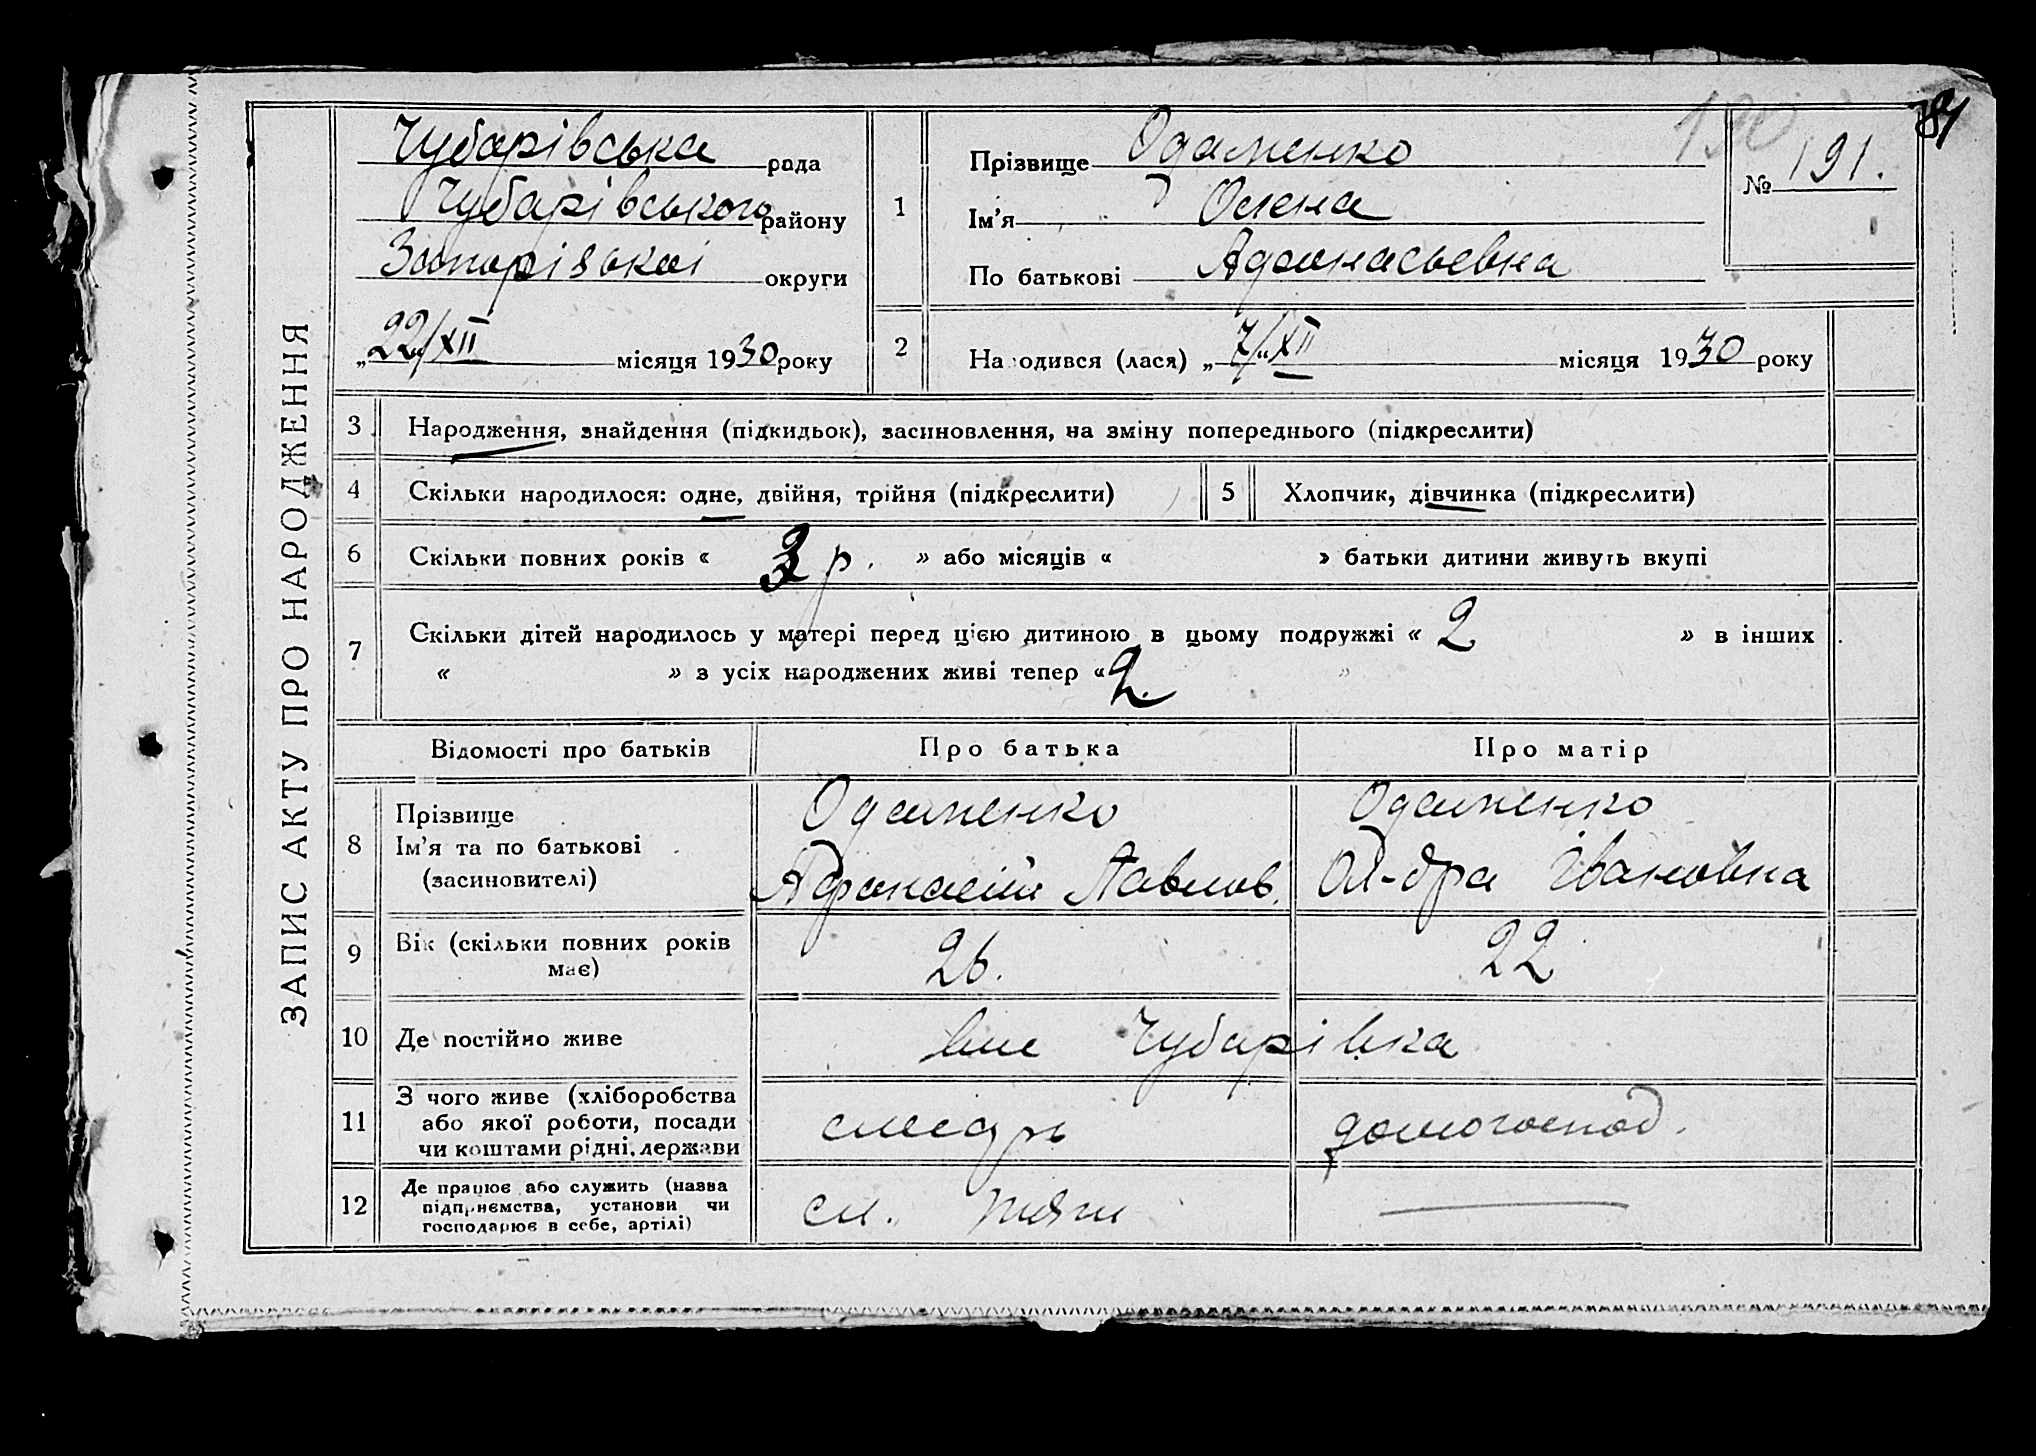 ЗАПИС АКТУ ПРО НАРОДЖЕННЯ
Чубарівська рада
Чубарівського району
Запорізької округи
„22/XII місяця 1930 року
1
Прізвище Одаменко
Ім'я Олена
По батькові Афанасьевна
№ 191.
190
81
2
Народився (лася) „7/„XII місяця 1930 року
3 Народження, знайдення (підкидьок), засиновлення, на зміну попереднього (підкреслити)
4 Скільки народилося: одне, двійня, трійня (підкреслити)
5 Хлопчик, дівчинка (підкреслити)
6 Скільки повних років « 3 р. » або місяців « » батьки дитини живуть вкупі
7 Скільки дітей народилось у матері перед цією дитиною в цьому подружжі « 2 » в інших
« » з усіх народжених живі тепер « 2. »
Відомості про батьків
Про батька
Про матір
8 Прізвище
Ім'я та по батькові
(засиновителі)
Одаменко
Афанасій Павлов.
Одаменко
Ол-дра Івановна
9 Вік (скільки повних років
має)
26.
22
10 Де постійно живе
Чубарівка
11 З чого живе (хліборобства
або якої роботи, посади
чи коштами рідні, держави
слюсарь
домогоспод.
12 Де працює або служить (назва
підприємства, установи чи
господарює в себе, артілі)